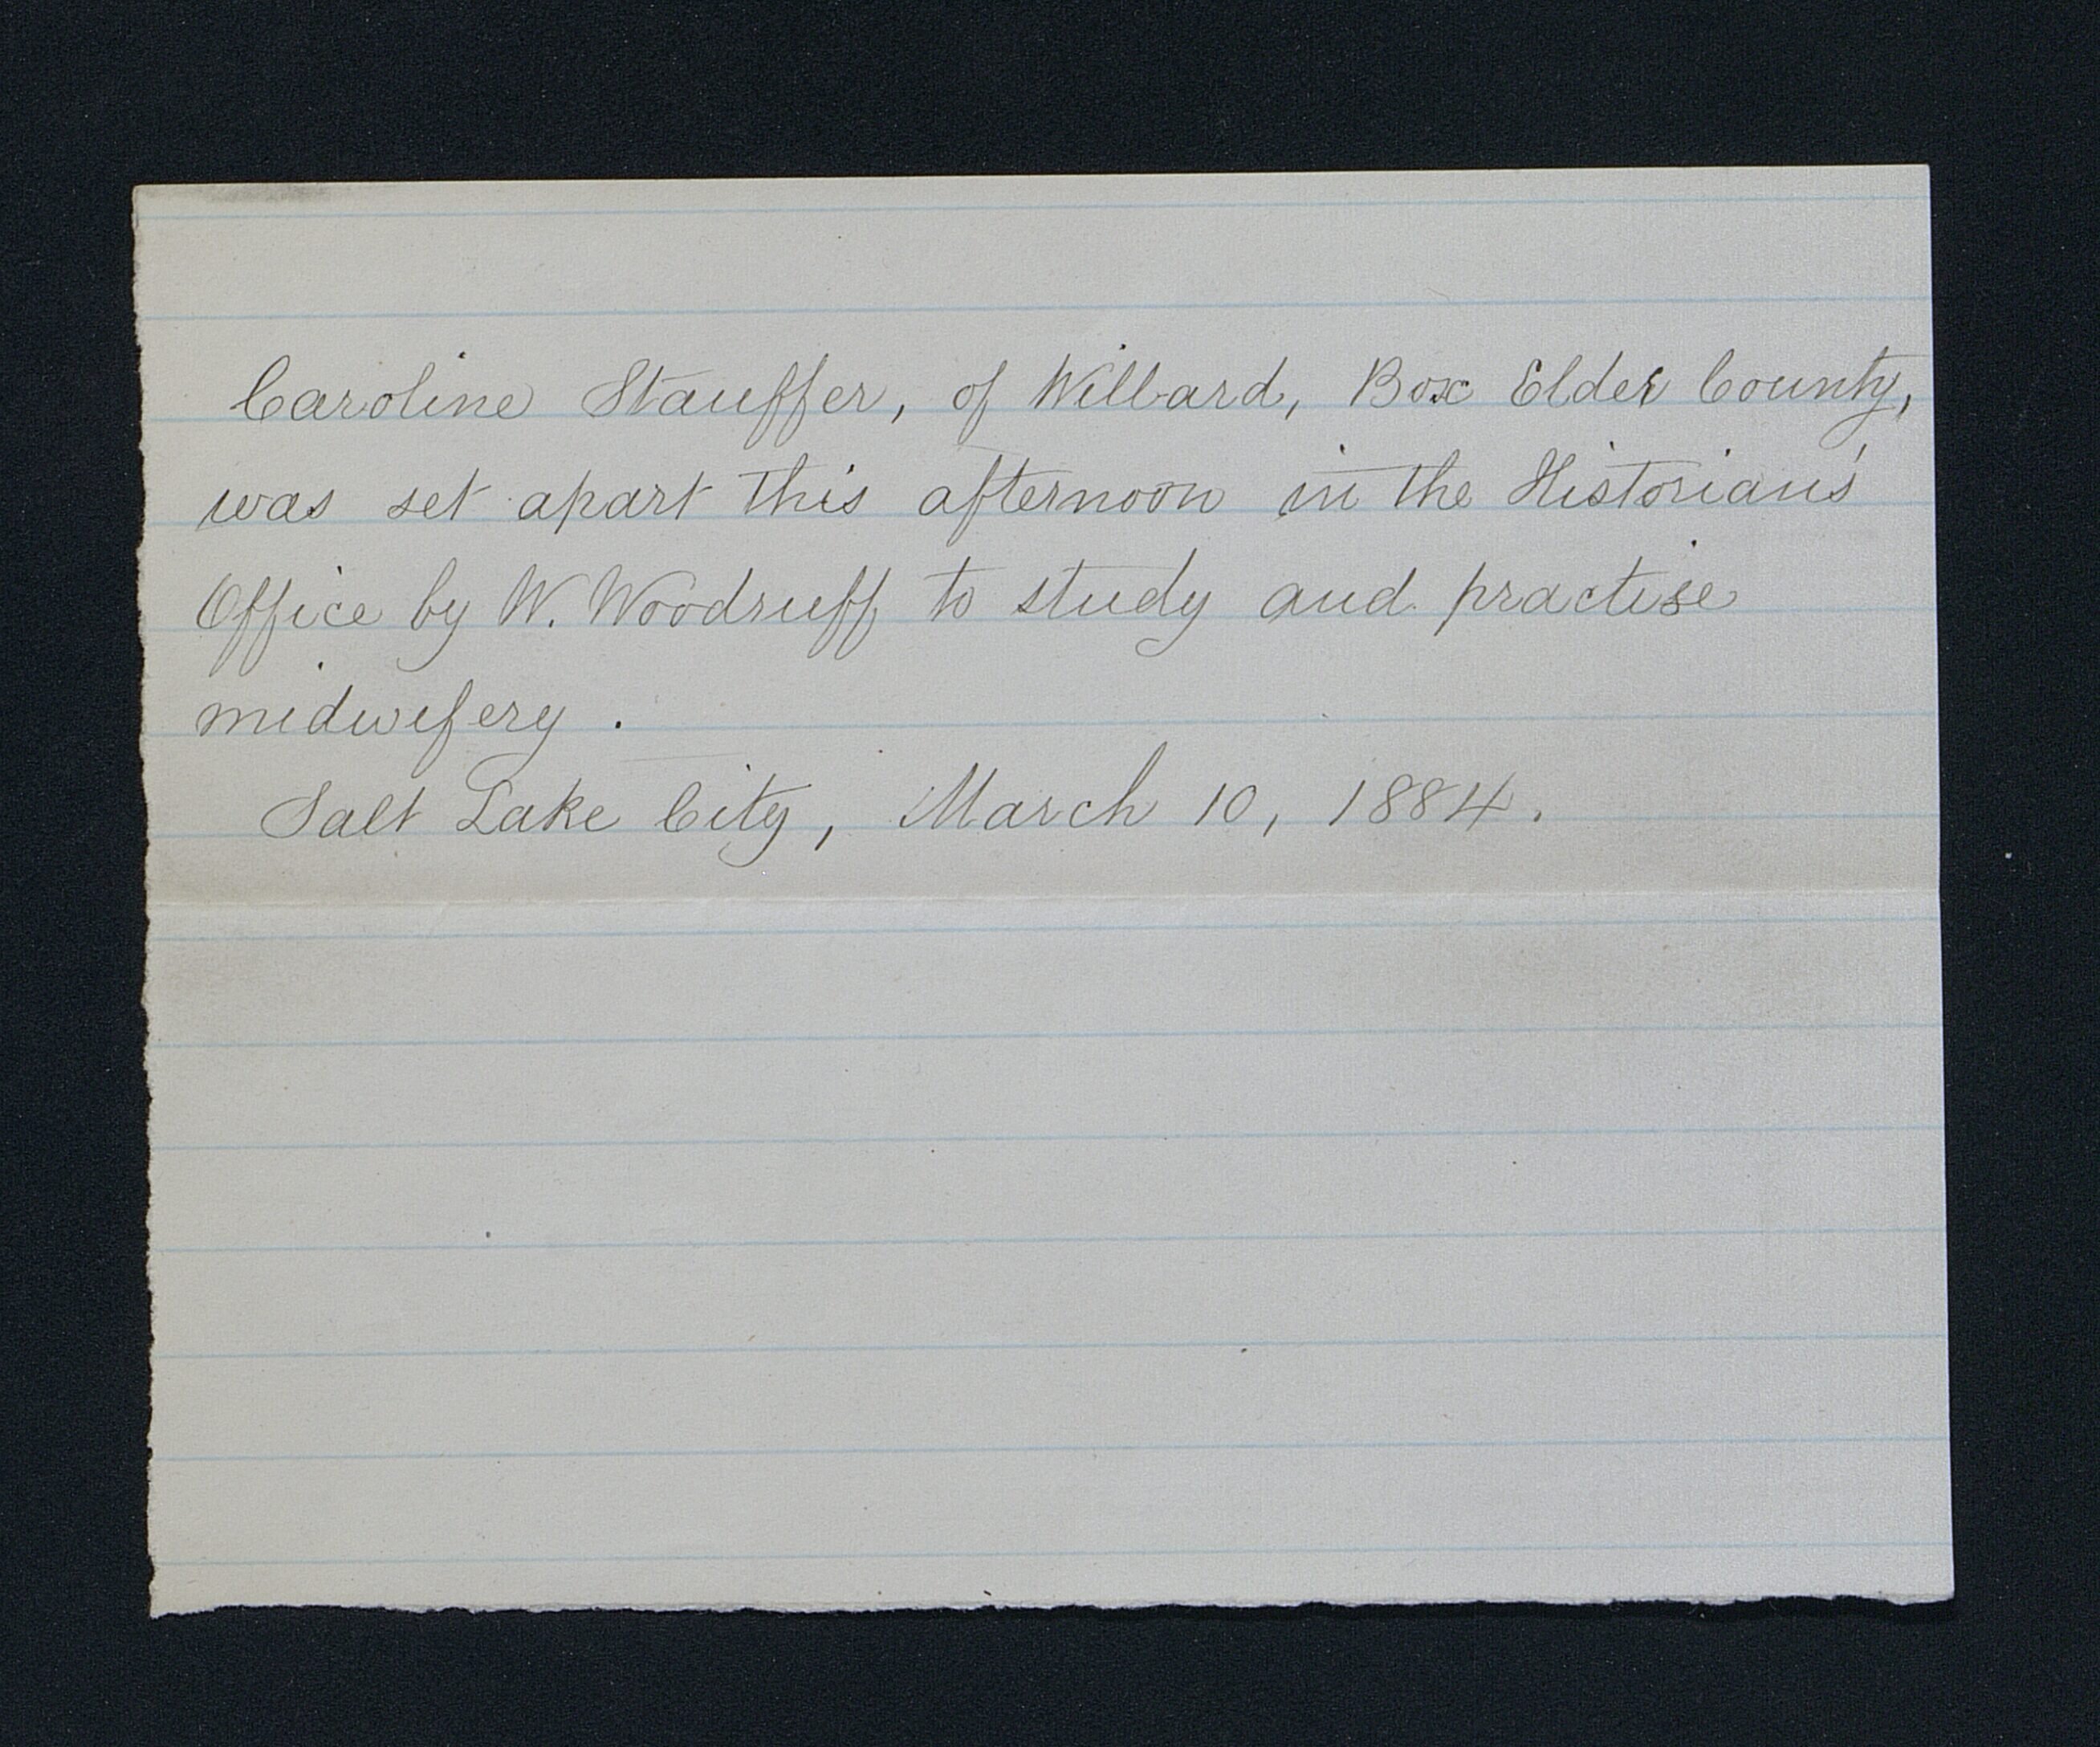 Caroline Stauffer, of Willard, Box Elder County,
was set apart this afternoon in the Historian's
Office by W. Woodruff to study and practise
midwifery.
Salt Lake City, March 10, 1884.